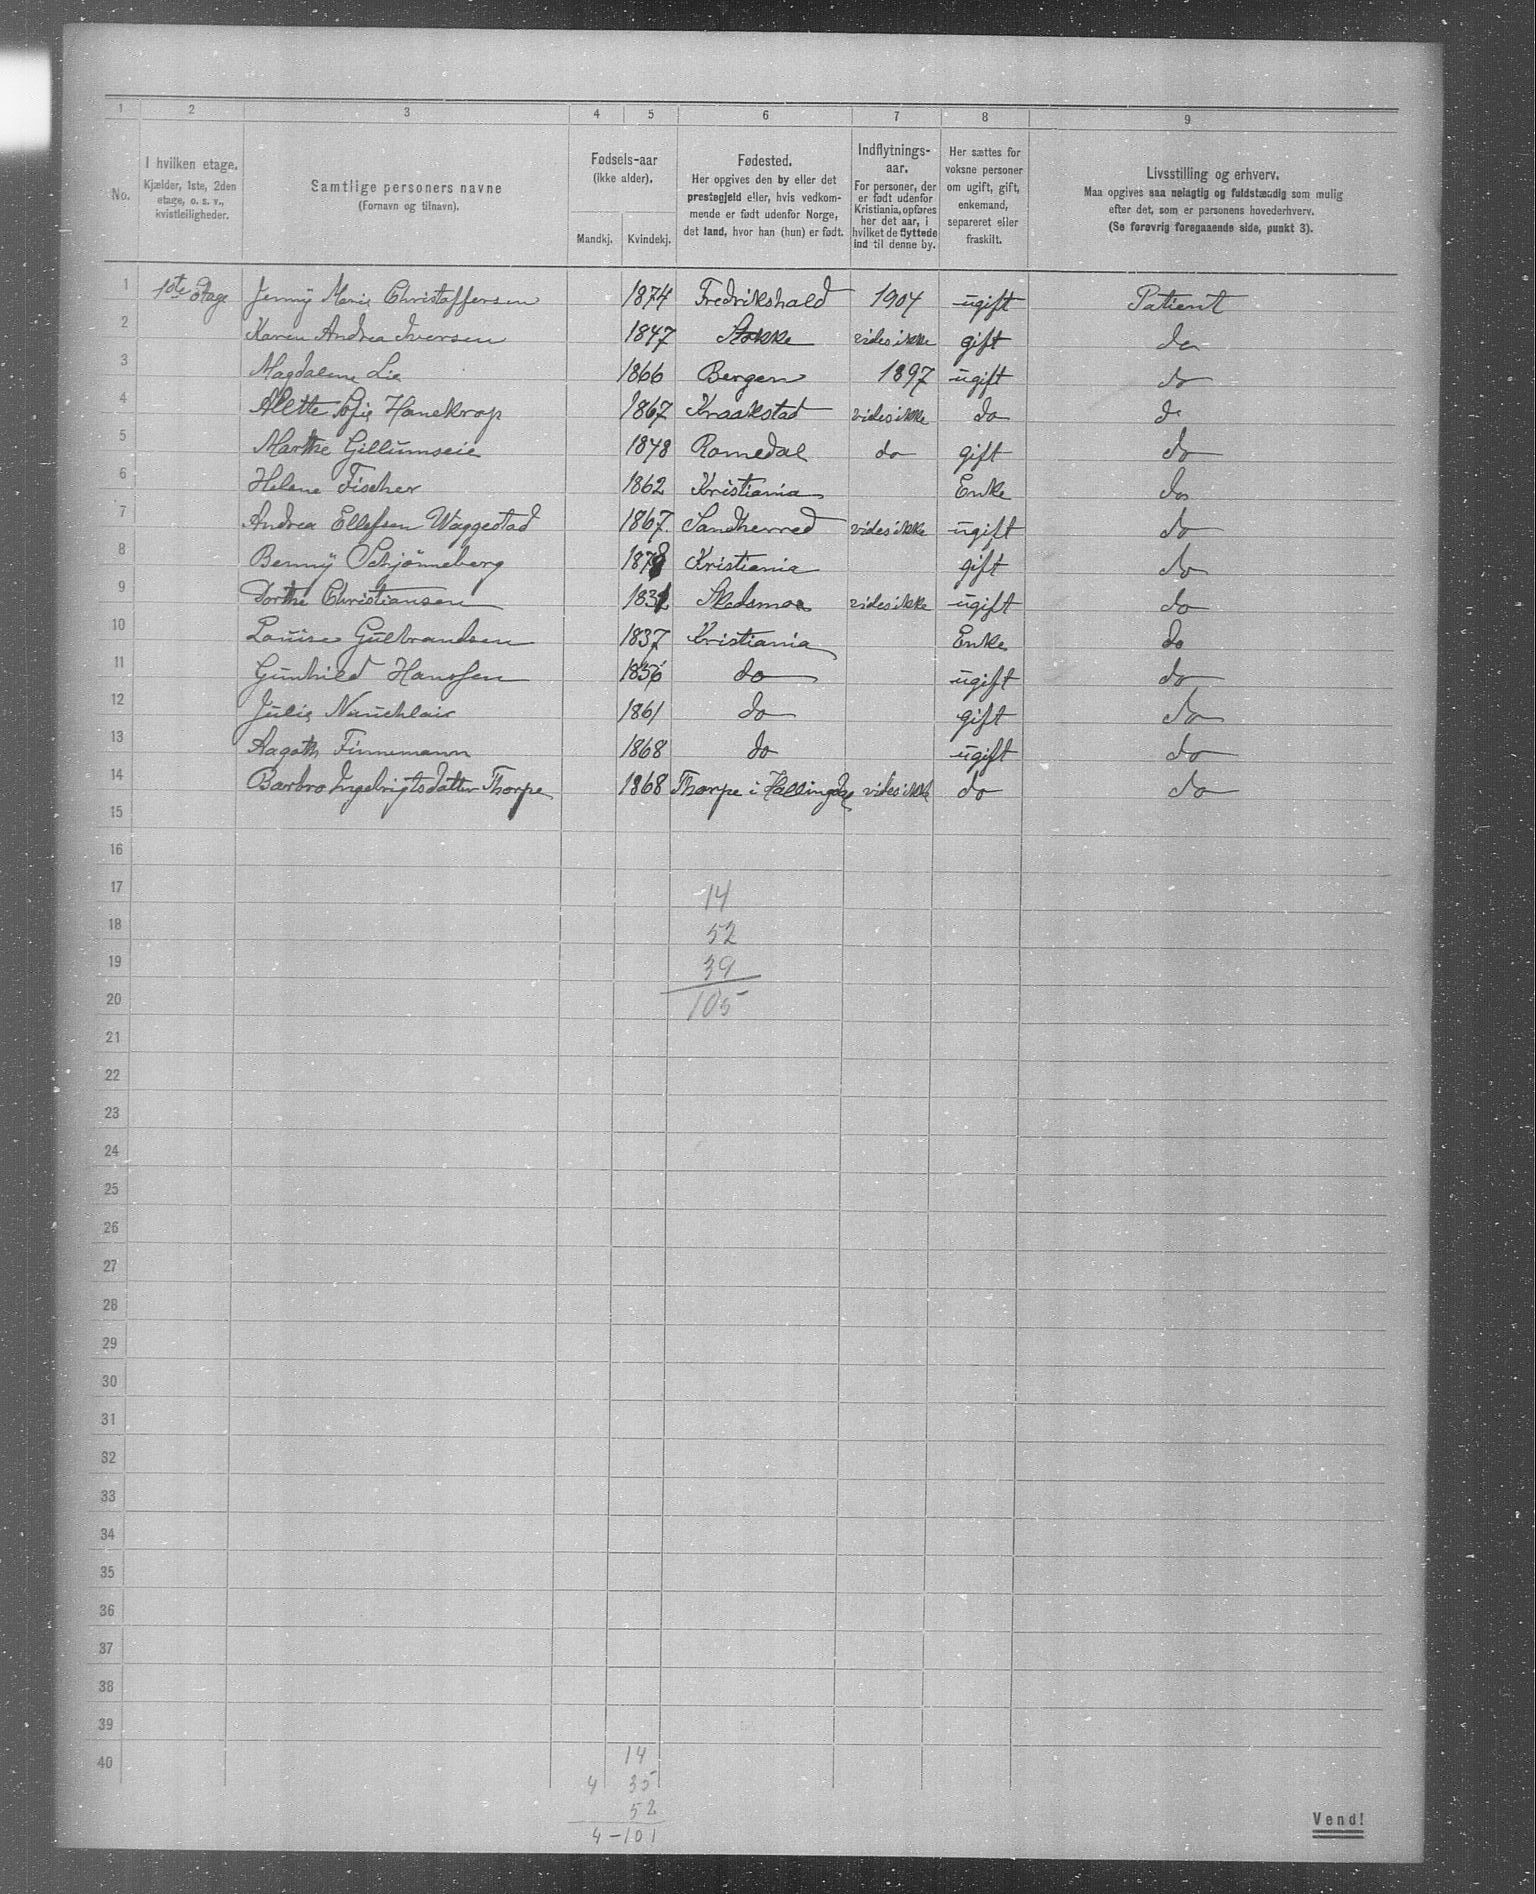 1 2 3 4 5 6 7 8 9
No.
I hvilken etage.
Kjælder, 1ste, 2den
etage, o. s. v.,
kvistleiligheder.
Samtlige personers navne
(Fornavn og tilnavn).
Fødsels-aar
(ikke alder).
Mandkj. Kvindekj.
Fødested.
Her opgives den by eller det
prestegjeld eller, hvis vedkom-
mende er født udenfor Norge,
det land, hvor han (hun) er født.
Indflytnings-
aar.
For personer, der
er født udenfor
Kristiania, opføres
her det aar, i
hvilket de flyttede
ind til denne by.
Her sættes for
voksne personer
om ugift, gift,
enkemand,
separeret eller
fraskilt.
Livsstilling og erhverv.
Maa opgives saa nøiagtig og fuldstændig som mulig
efter det, som er personens hovederhverv.
(Se forøvrig foregaaende side, punkt 3).
1 1ste Etage Jenny Marie Christoffersen 1874 Fredrikshald 1904 ugift Patient
2 Karen Andrea Iversen 1847 Stokke vides ikke gift do
3 Magdalene Lie 1866 Bergen 1897 ugift do
4 Alette Sofie Hanekrop 1867 Kraakstad vides ikke do do
5 Marthe Gillumseie 1848 Romedal do gift do
6 Helene Fischer 1862 Kristiania Enke do
7 Andrea Ellefsen Waggestad 1867. Sandherred vides ikke ugift do
8 Benny Schjønneberg 1878 Kristiania gift do
9 Dorthe Christiansen 1831 Skedsmoe vides ikke ugift do
10 Louise Gulbrandsen 1837 Kristiania Enke do
11 Gunhild Hansen 1856 do ugift do
12 Julie 1861 do gift do
13 Aagoth Finnemann 1868 do ugift do
14 Barbro Ingebrigtsdatter Thorpe 1868 Thorpe i Hallingdal vides ikke do do
15
16
17 14
18 52
19 39
20 105
21
22
23
24
25
26
27
28
29
30
31
32
33
34
35
36
37
38
39
40 14
4 35
52
4-101
Vend!